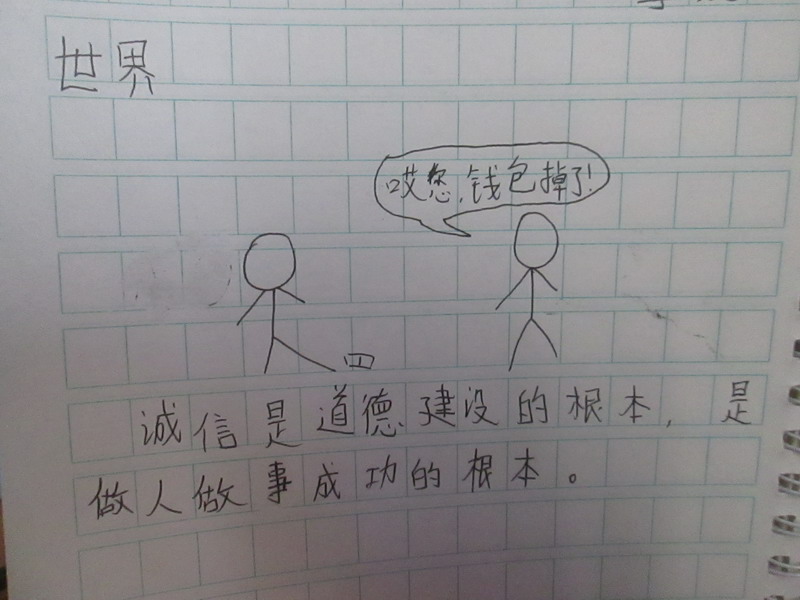 世界
哎您,钱包掉了!
诚信是道德建设的根本,是
做人做事成功的根本。